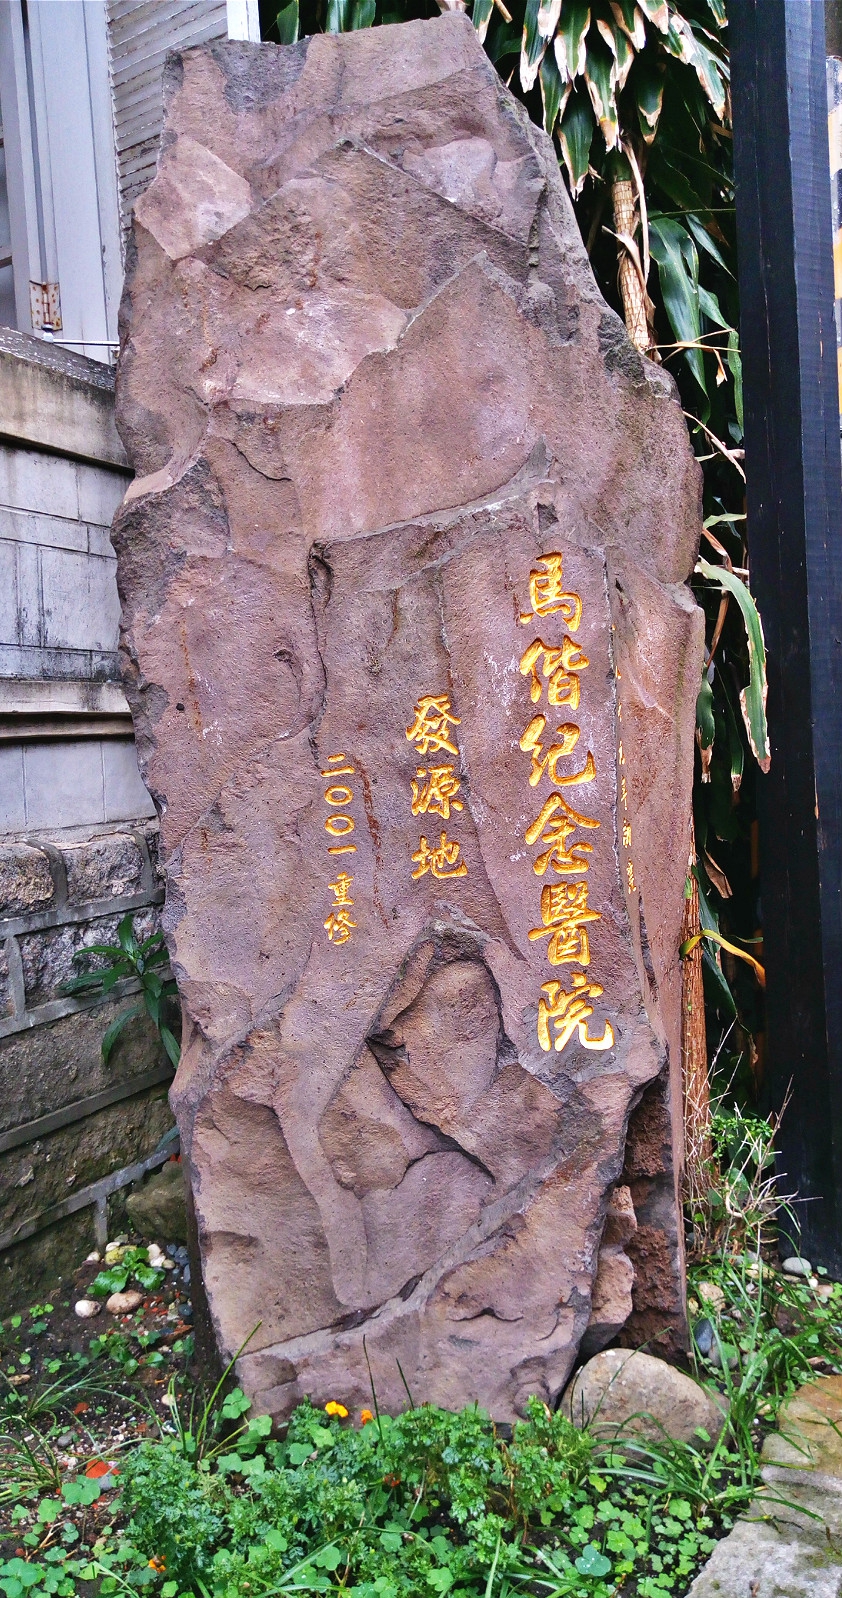 馬偕紀念醫院
發源地
二〇〇一重修